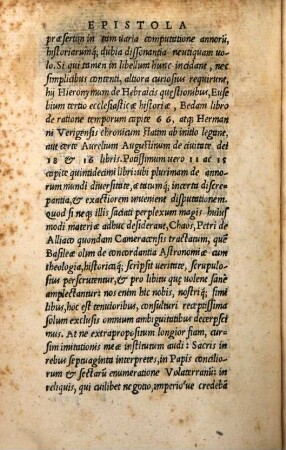 EPISTOLA
præsertim in tam uaria computatione annorũ,
historiarumq; dubia dissonantia neutiquam uo-
lo. Si qui tamen in libellum hunc incidant, nec
simplicibus contenti, altiora curiosius requirunt,
hij Hieronymum de Hebraicis quæstionibus, Eu-
sebium tertio ecclesiasticæ historiæ, Bedam libro
de ratione temporum capite 66, atq; Herman
ni Verigensis chronicum statim ab initio legant,
aut certe Aurelium Augustinum de ciuitate dei
18 & 16 libris. Potissimum uero 11 ac 15
capite quintidecimi libri: ubi plurimam de anno-
rum mundi diuersitate, ætatumq; incerta discre-
pantia, & exactiorem inueniene disputationem.
Quod si neq; illis saciati perplexum magis huius
modi materiæ adhuc desiderant, Chaos, Petri de
Alliaco quondam Cameracensis tractatum, quẽ
Basileæ olim de concordantia Astronomiæ cum
theologia, historicaq; scripsit ueritate, scrupulo-
sius perscrutentur, & pro libitu quę uolene sane
amplectantur: nos enim hic nobis, nostriq; simi
libus, hoc est tenuioribus, consulturi receptissima
solum exclusis omnium ambiguitatibus decerpsi
mus. At ne extra propositum longior fiam, cur-
sim imitationis meæ institutum audi: Sacris in
rebus septuaginta interpretes, in Papis concilio-
rum & sectarũ enumeratione Volaterranũ: in
reliquis, qui cuilibet negotio, imperio'ue credebã